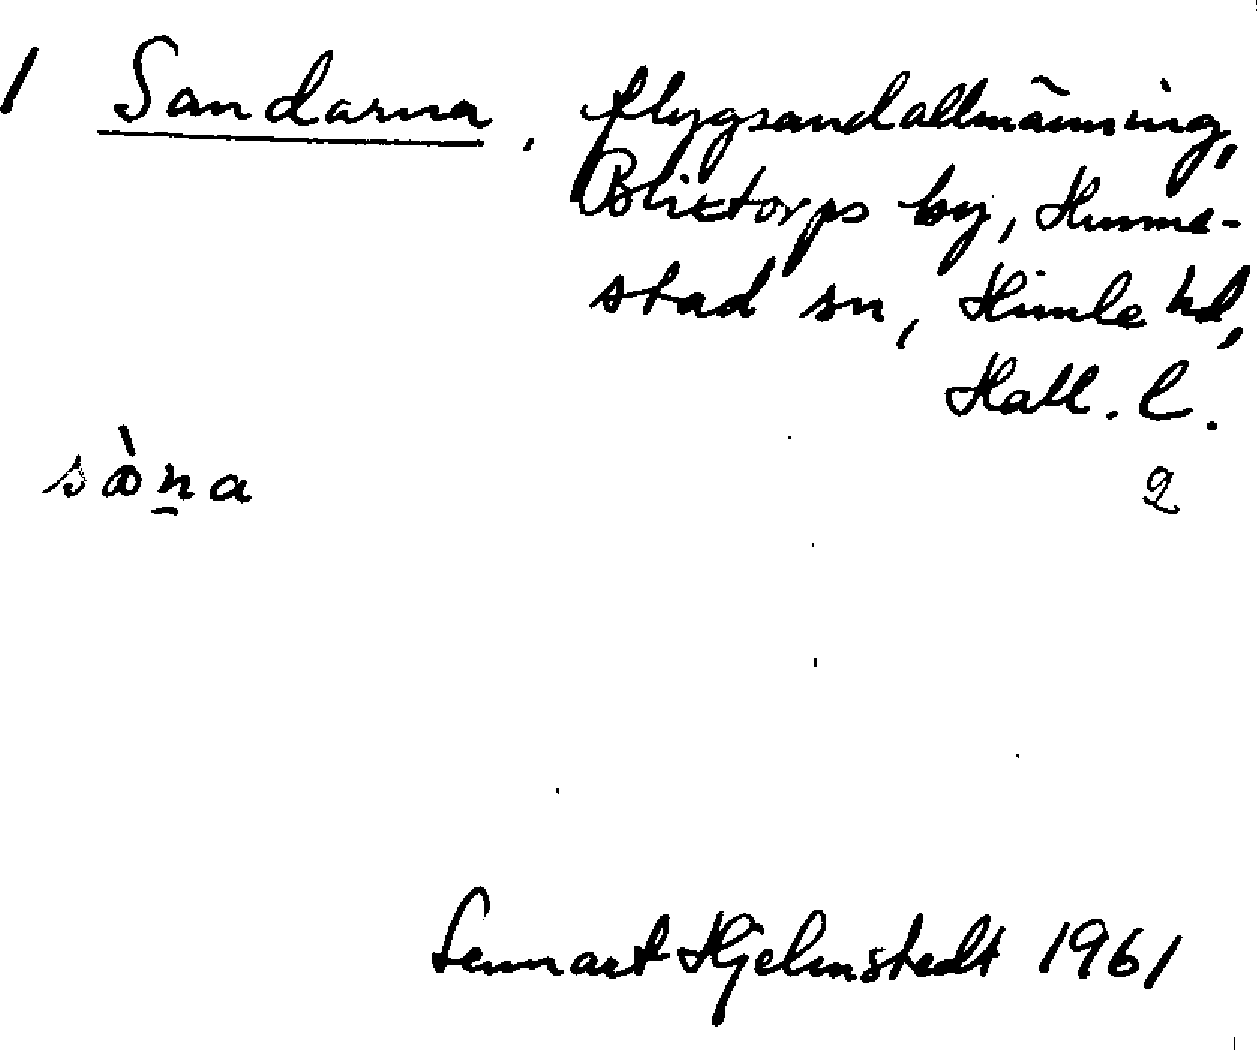 1 Sandarna, flygsandallmänning,
Blixtorps by, Hunne-
stad sn, Himle hd,
Hall. l.
sȁn̠a 2
Lennart Hjelmstedt 1961